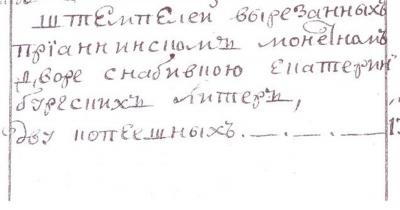 штемпелей вырезанныхъ
прианнинскомъ монетномъ
дворе снабивкою екатерин
бурескихъ литеръ,
дву копеешныхъ
1